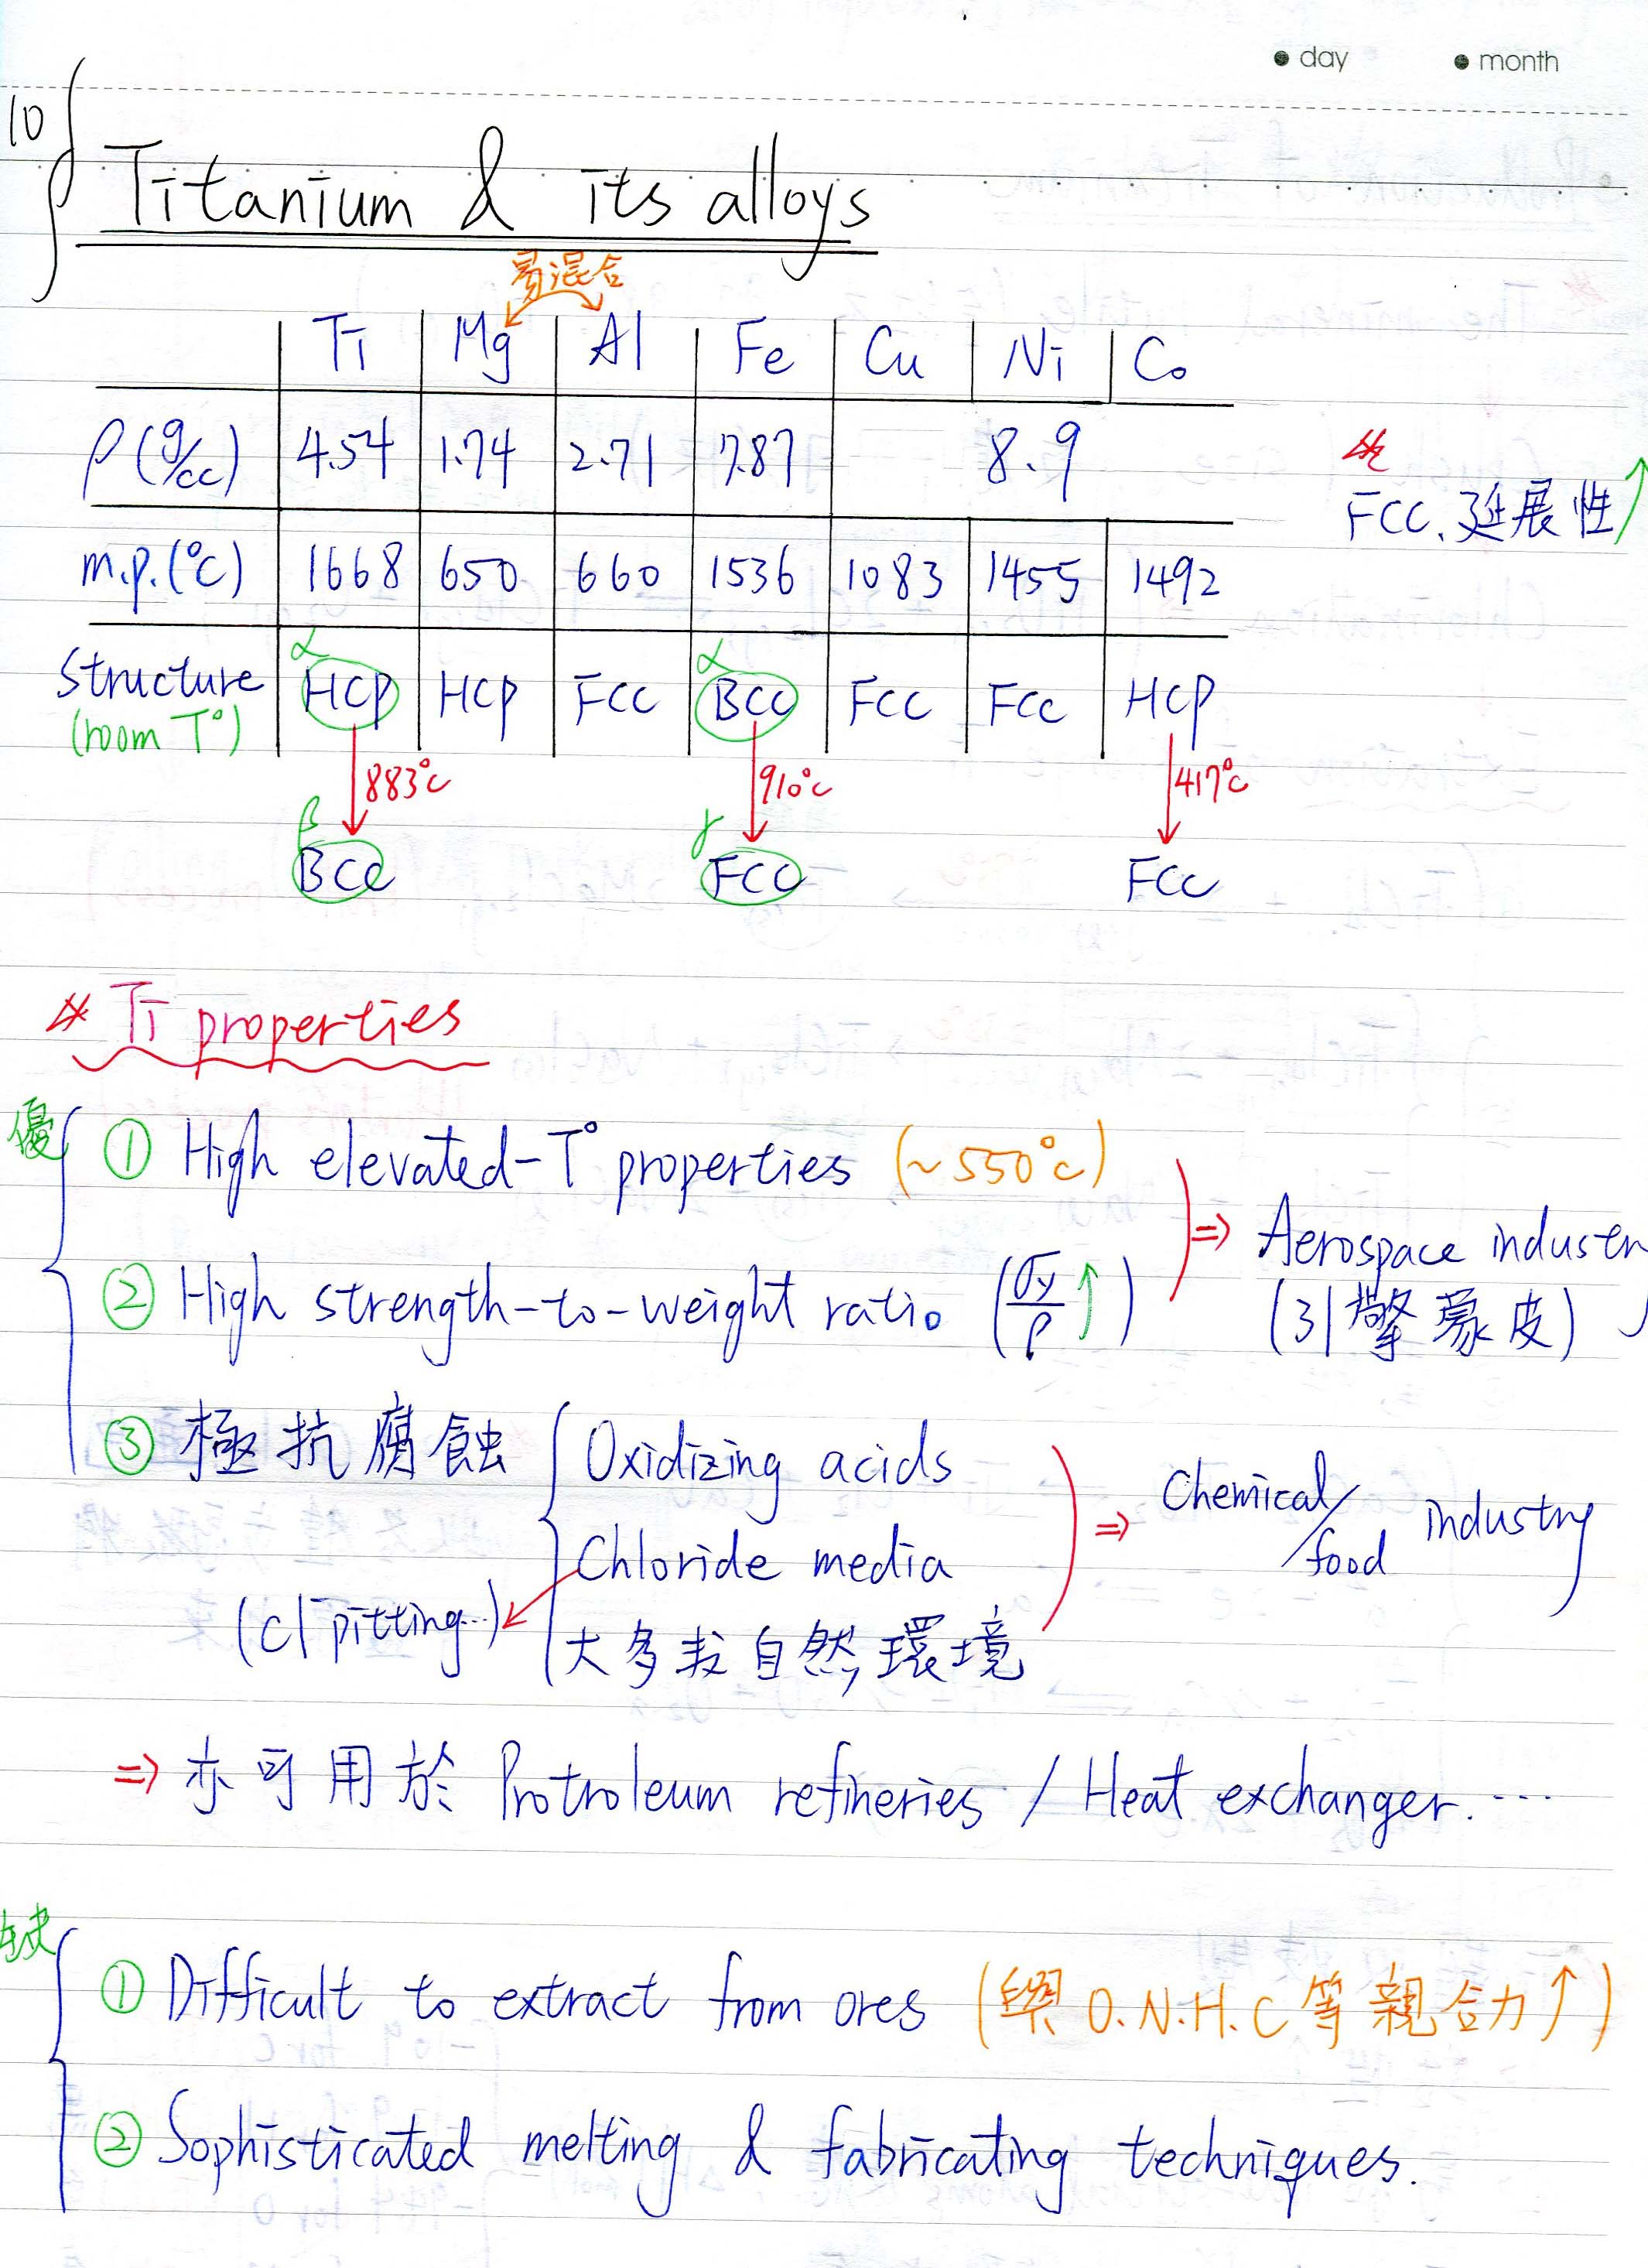 day month
10
Titanium & its alloys
易混合
Ti Mg Al Fe Cu Ni Co
ρ (g/cc) 4.54 1.74 2.71 7.87 8.9
m.p. (°C) 1668 650 660 1536 1083 1455 1492
FCC. 延展性↑
α α
Structure HCP HCP FCC BCC FCC FCC HCP
(room T°)
883°C 910°C 417°C
β γ
BCC FCC FCC
Ti properties
優
① High elevated-T° properties (~550°C)
② High strength-to-weight ratio (σy/ρ ↑)
⇒ Aerospace industry
(引擎蒙皮)
③ 極抗腐蝕 Oxidizing acids
Chloride media
(Cl⁻ pitting...) 大多數自然環境
⇒ Chemical/food industry
⇒ 亦可用於 Protroleum refineries / Heat exchanger. ...
缺
① Difficult to extract from ores ( O.N.H.C 等親合力↑)
② Sophisticated melting & fabricating techniques.